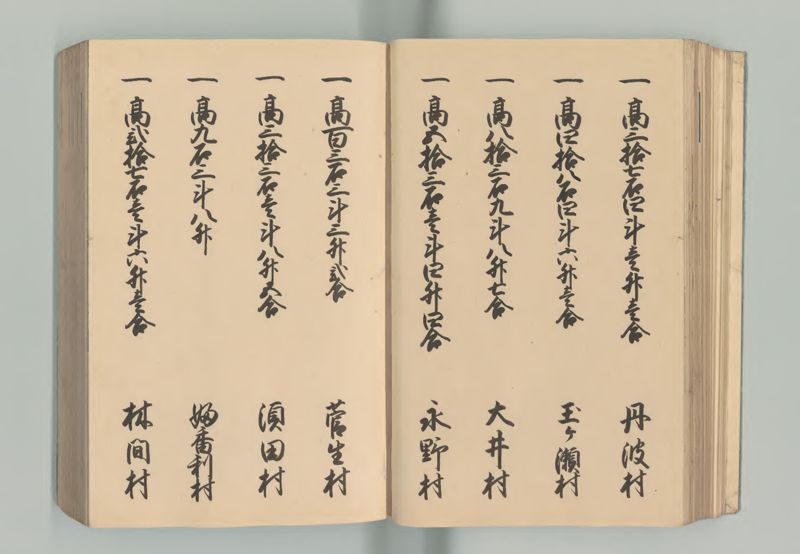 一 高三拾七石四斗壱升壱合 丹波村
一 高四拾八石四斗六升壱合 玉ヶ瀬村
一 高八拾三石九斗八升七合 大井村
一 高五拾三石壱斗四升四合 永野村
一 高百三石三斗三升弐合 菅生村
一 高三拾三石壱斗八升五合 須田村
一 高九石三斗八升 婦番利村
一 高弐拾七石壱斗六升壱合 林間村